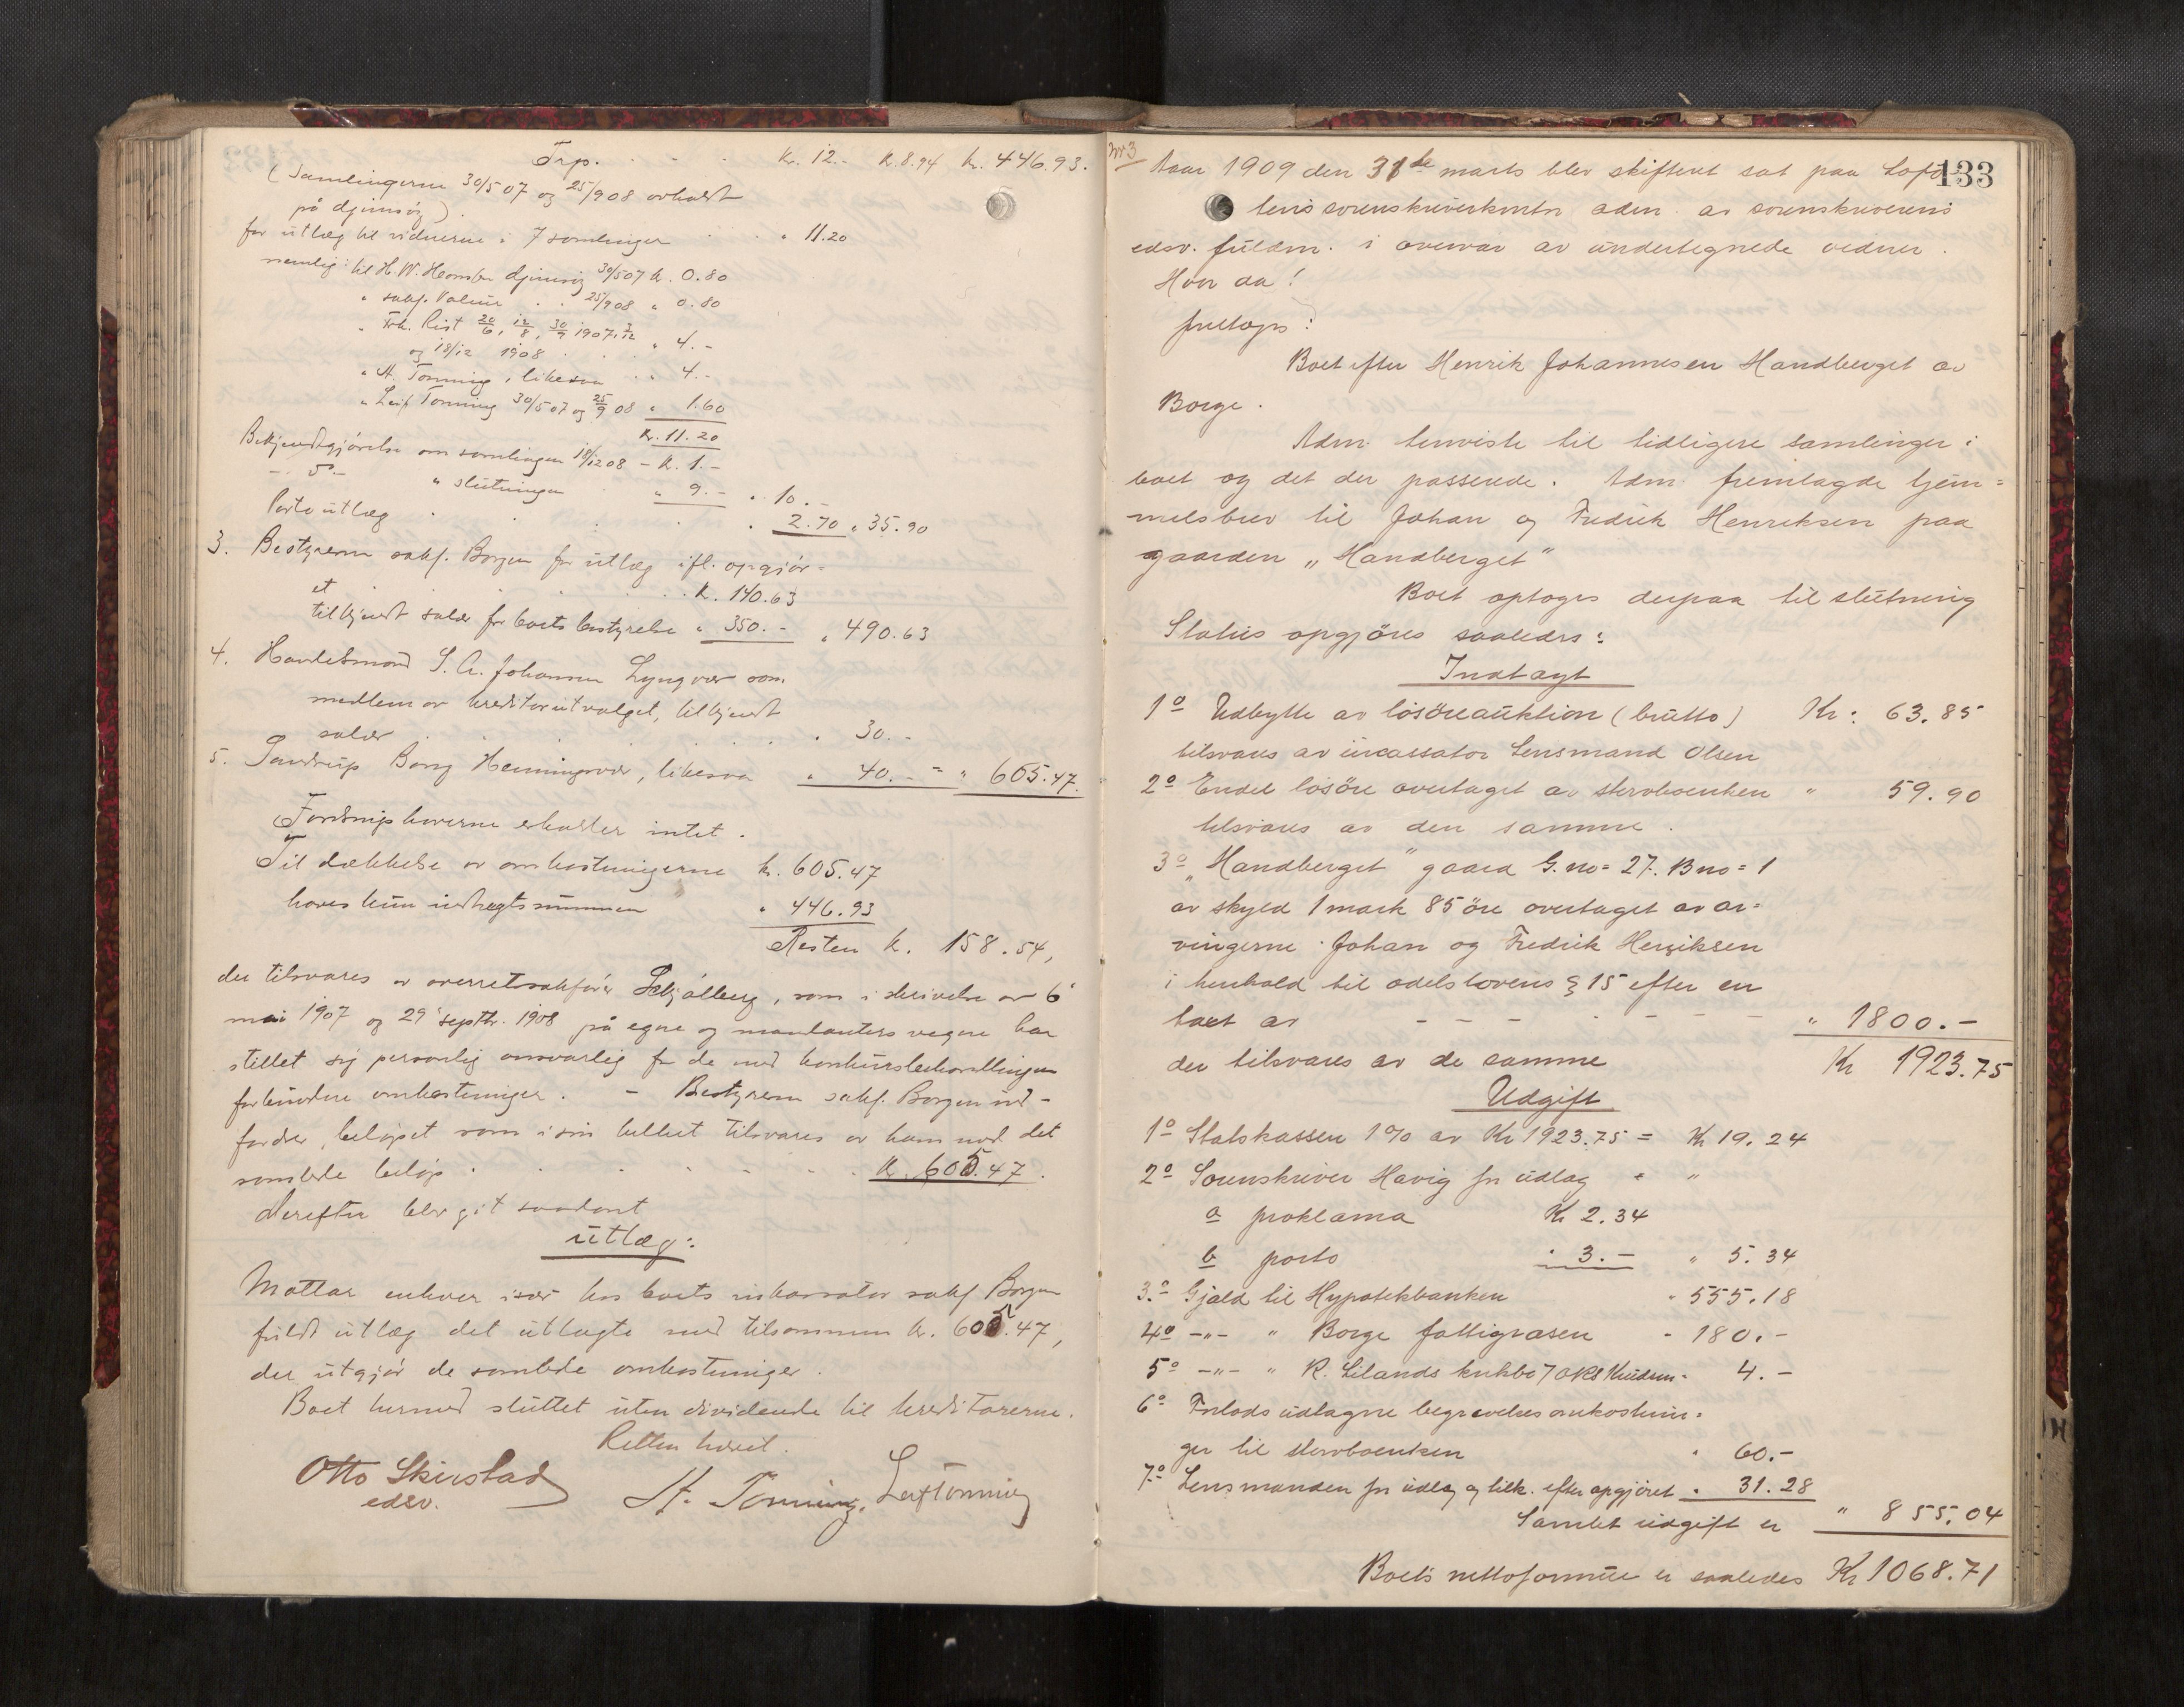 Trp. . . . Kr. 12.- Kr. 8.94 Kr. 446.93.
(Samlingerne 30/5 07 og 25/9 08 avholdt
på Gjimsøy).
for utlæg til vidnerne i 7 samlinger . . . " 11.20
nemlig: til H. W. Gjimsöy 30/5 07 kr. 0.80
" sakf. . . 25/9 08 " 0.80
" Frk. Rist 20/6, 12/8, 30/9 1907, 3/12
og 18/12 1908 . . " 4.-
" A. Tonning, likesaa . . " 4.-
" Leif Tonning 30/5 07 og 25/9 08 " 1.60
Kr. 11.20
Bekjendtgjörelse om samlingen 18/12 08 - Kr. 1.-
- " - " slutningen . " 9.- " 10.-
Porto utlæg . . . . . 2.70 " 35.90
3. Bestyreren sakf. Borgen for utlæg ifl. opgjör-
et . . . . . . Kr. 140.63
tilkjendt salær for boets bestyrelse " 350.- " 490.63
4. Handelsmand S. A. Johansen Lyngvær som
medlem av kreditorutvalget, tilkjendt
salær . . . . . . . " 30.-
5. Borg Henningsvær, likesaa " 40.- = " 605.47.
Fordringshaverne erholder intet.
Til dækkelse av omkostningerne kr. 605.47
haves kun indtægtssummen " 446.93
Resten kr. 158.54,
der tilsvares av overretssakfører Schjølberg, som i skrivelse av 6'
mai 1907 og 29' septbr. 1908 på egne og mandanters vegne har
stillet sig personlig ansvarlig for de med konkursbehandlingen
forbundne omkostninger. - Bestyreren sakf. Borgen ind-
fordrer beløpet som i sin helhet tilsvares av ham med det
samlede beløp . . . . . . Kr. 605.47.
Derefter blev git saadant
utlæg:
Mottar enhver især hos boets inkassator sakf. Borgen
fuldt utlæg det utlagte med tilsammen kr. 605.47,
der utgjør de samlede omkostninger.
Boet hermed sluttet uten dividende til kreditorerne.
Retten hævet.
Otto Skirstad
edsv.
A. Tonning. Leif Tonning
No 3
133
Aar 1909 den 31te marts blev skifteret sat paa Lofo-
tens sorenskriverkontor adm. av sorenskriverens
edsv. fuldm. i overvær av undertegnede vidner.
Hvor da!
foretoges:
Boet efter Henrik Johannesen Handberget av
Borge.
Adm. henviste til tidligere samlinger i
boet og det der passerede. Adm. fremlagde hjem=
melsbrev til Johan og Fredrik Henriksen paa
gaarden "Handberget"
Boet optoges derpaa til slutning
Status opgjøres saaledes:
Indtægt
1o Udbytte av løsøreauktion (brutto) Kr: 63.85
tilsvares av incassator Lensmand Olsen
2o Endel løsøre overtaget av sterboenken " 59.90
tilsvares av den samme.
3o "Handberget" gaard G.no= 27. Bno= 1
av skyld 1 mark 85 øre overtaget av ar=
vingerne Johan og Fredrik Henriksen
i henhold til odelslovens § 15 efter en
taxt av - - - - - - - " 1800.-
der tilsvares av de samme Kr 1923.75
Udgift
1o Statskassen 1% av Kr 1923.75 = Kr 19.24
2o Sorenskriver Havig for udlæg " "
a proklama Kr 2.34
b porto " 3.- " 5.34
3.o Gjæld til Hypotekbanken " 555.18
4o -"- " Borge fattigvæsen " 180.-
5o -"- " R. Lilands enkebo / O. R. Knudsen " 4.-
6o Forlods udlagne begravelsesomkostnin=
ger til sterboenken " 60.-
7o Lensmanden for udlæg og tilk. efter opgjöret " 31.28
Samlet udgift er " 855.04
Boets nettoformue er saaledes Kr 1068.71